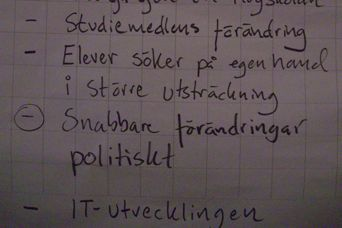 - Studiemedlens förändring
- Elever söker på egen hand
i större utsträckning
- Snabbare förändringar
politiskt
- IT-utvecklingen